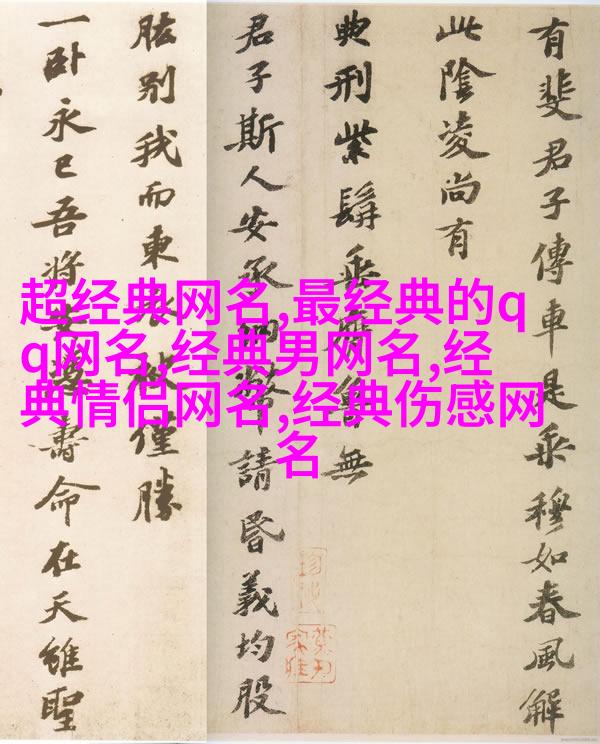 超经典网名,最经典的q
q网名,经典男网名,经
典情侣网名,经典伤感网
名
有斐君子傳車是乘穆如春風解
此陰凌尚有
典刑紫髯垂膺魯無
君子斯人安承納幣請昏義均股
肱別我而東衣袂僅勝
一卧永已吾將安憑壽命在天雖聖